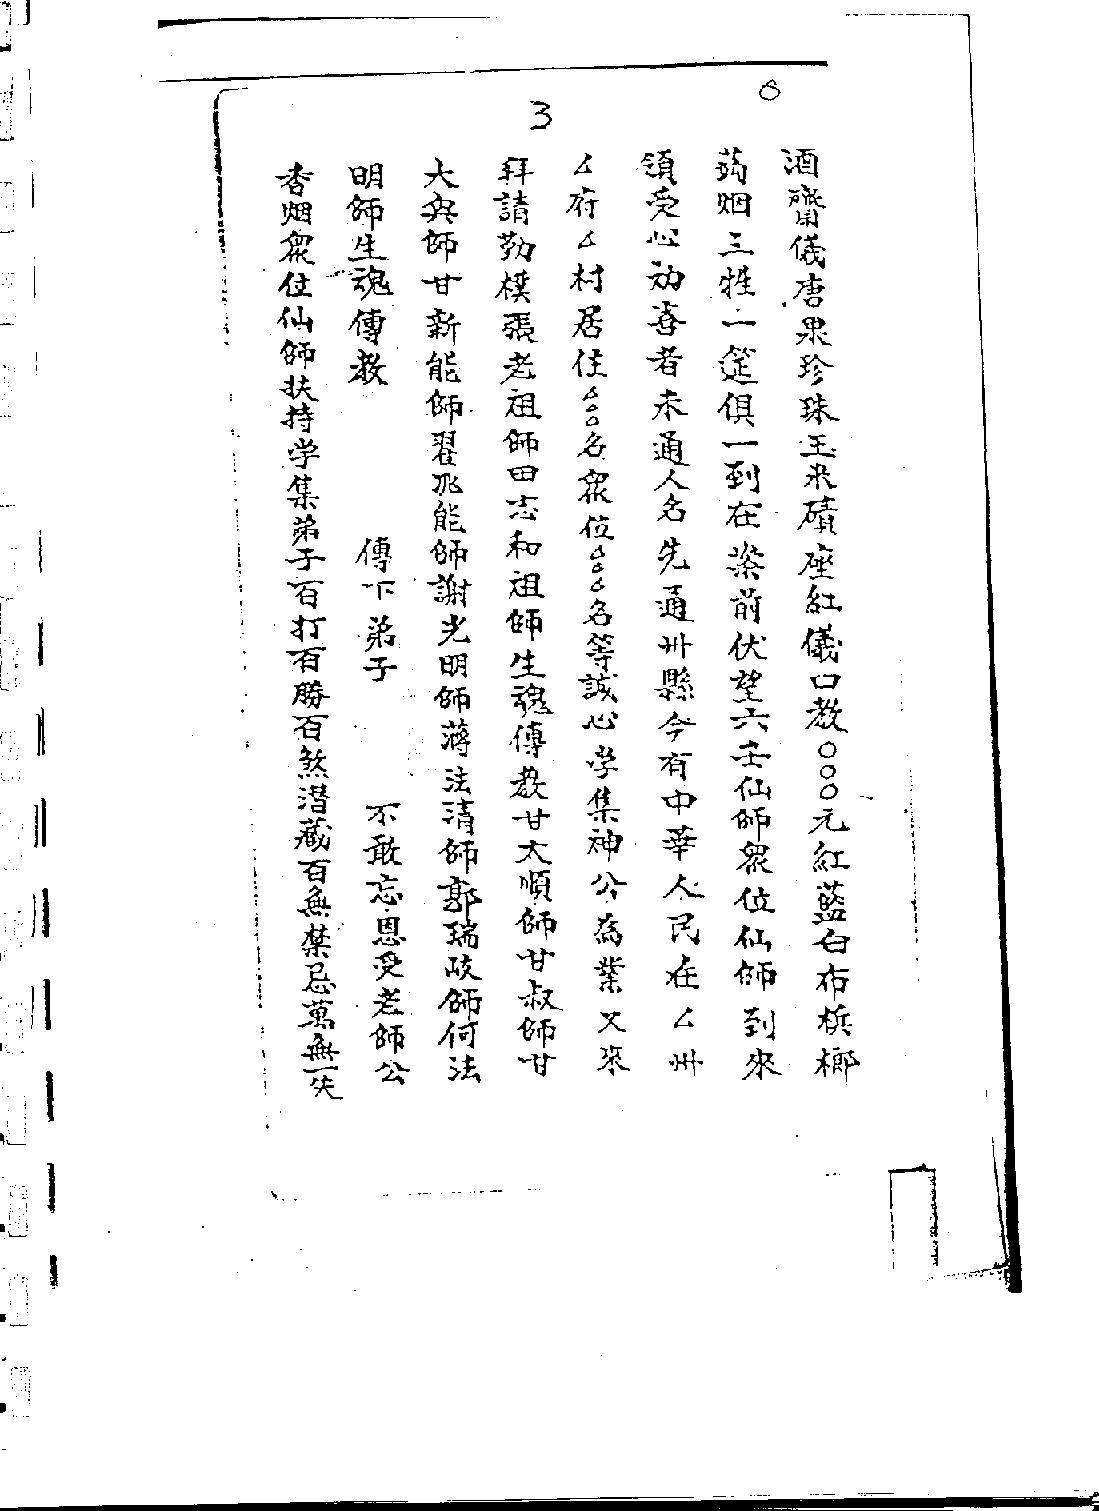 6
3
酒齋儀唐果珍珠玉米磧座紅儀口教〇〇〇元紅藍白布梹榔
蒟烟三牲一筵俱一到在案前伏望六壬仙師眾位仙師到來
領受心劝喜者未通人名先通卅縣今有中華人民在厶卅
厶府厶村居住厶厶厶名眾位厶厶厶名等誠心学集神公為業又來
拜請勤樸張老祖師田志和祖師生魂傳教甘大順師甘叔師甘
大興師甘新能師翟兆能師謝光明師蔣法清師郭瑞岐師何法
明師生魂傳教 傳下弟子 不敢忘恩受老師公
香烟眾位仙師扶持学集弟子百打百勝百煞潜藏百無禁忌萬無一失